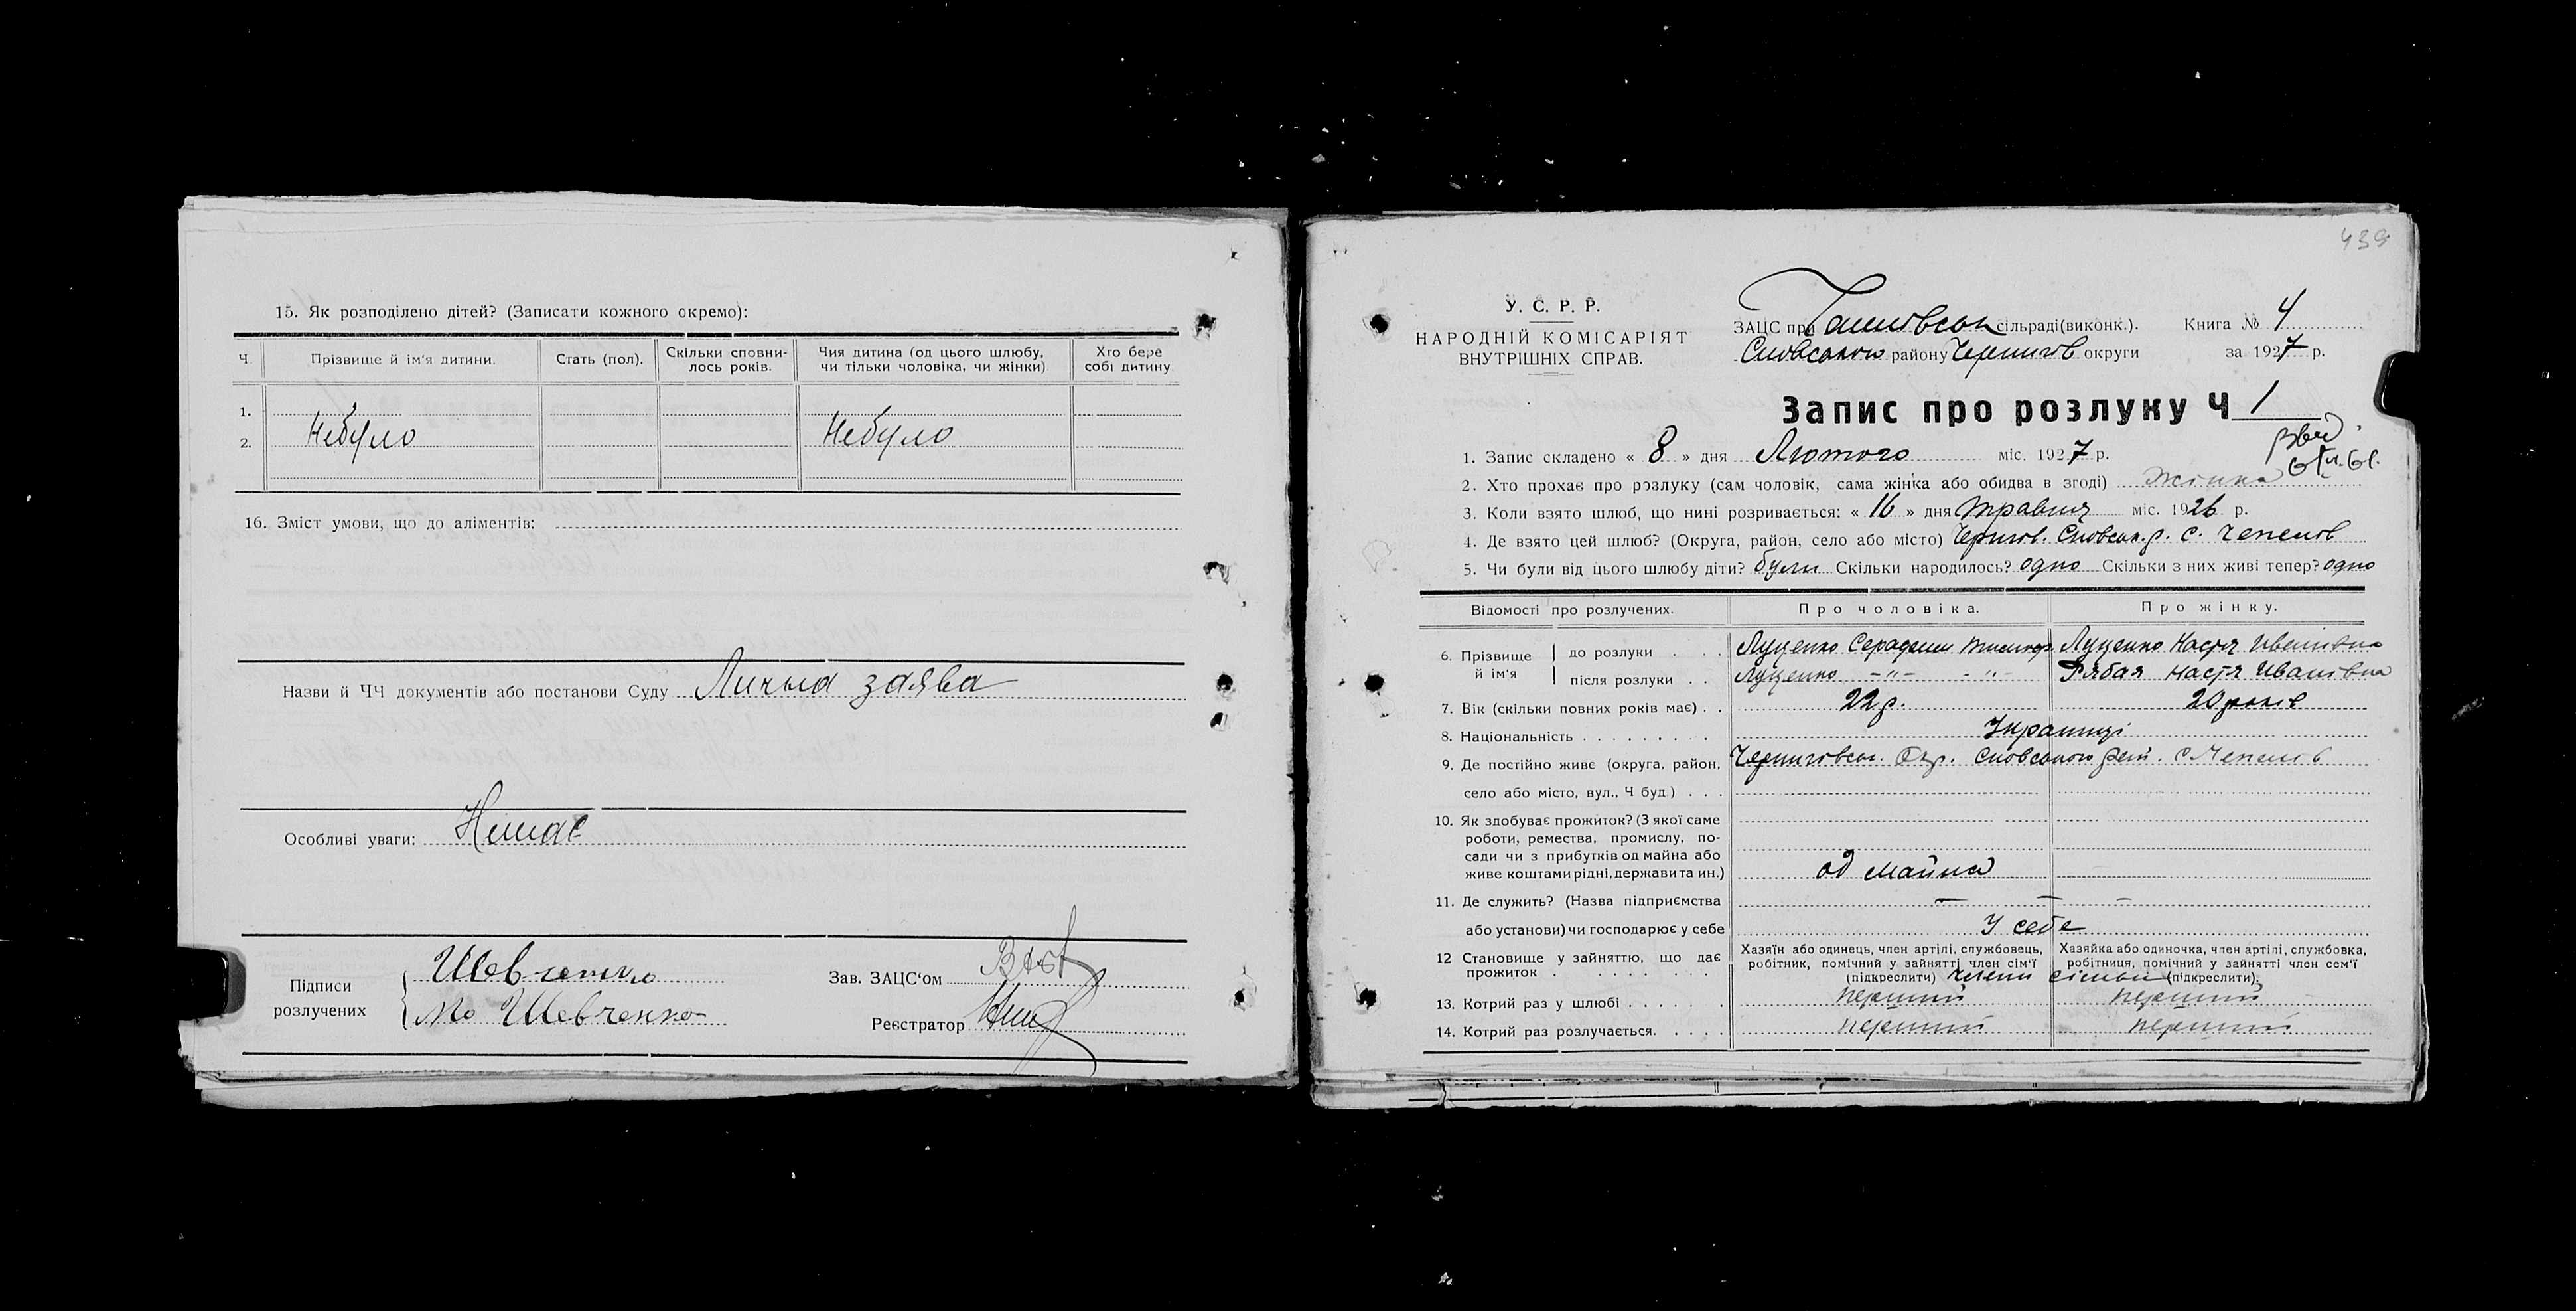 15. Як розподілено дітей? (Записати кожного окремо):
Ч. Прізвище й ім'я дитини. Стать (пол). Скільки сповни-лось років. Чия дитина (од цього шлюбу, чи тільки чоловіка, чи жінки) Хто бере собі дитину.
1.
2. Небуло Небуло
16. Зміст умови, що до аліментів:
Назви й ЧЧ документів або постанови Суду Лична заява
Особливі уваги: Немає
Підписи розлучених
Шевченко
Мо Шевченко
Зав. ЗАЦС'ом
Реєстратор
439
У. С. Р. Р.
НАРОДНІЙ КОМІСАРІЯТ
ВНУТРІШНІХ СПРАВ.
ЗАЦС при сільраді (виконк.). Книга № 4
Сновського району Чернигов округи за 1927 р.
Запис про розлуку Ч 1
1. Запис складено « 8 » дня Лютого міс. 1927 р.
2. Хто прохає про розлуку (сам чоловік, сама жінка або обидва в згоді) жінка
3. Коли взято шлюб, що нині розривається: « 16 » дня травня міс. 1926 р.
4. Де взято цей шлюб? (Округа, район, село або місто) Чернигов. Сновськ. р. с. Чепелов
5. Чи були від цього шлюбу діти? були Скільки народилось? одно Скільки з них живі тепер? одно
Відомості про розлучених. Про чоловіка. Про жінку.
6. Прізвище й ім'я
до розлуки . . . Луценко Луценко Настя Иванівна
після розлуки . . Луценко -"- -"- Рябая Настя Иванівна
7. Вік (скільки повних років має) . . 22 р. 20 років
8. Національність . . . . . . . . . Украинці
9. Де постійно живе (округа, район, Черниговськ. Окр. Сновського рай. с Чепелов
село або місто, вул., Ч буд.) . . .
10. Як здобуває прожиток? (З якої саме
роботи, ремества, промислу, по-
сади чи з прибутків од майна або
живе коштами рідні, держави та ин.) од майна
11. Де служить? (Назва підприємства — — —
або установи) чи господарює у себе У себе
12 Становище у зайняттю, що дає
прожиток . . . . . . . .
Хазяїн або одинець, член артілі, службовець,
робітник, помічний у зайнятті член сім'ї
(підкреслити) члени сімьи
Хазяйка або одиночка, член артілі, службовка,
робітниця, помічний у зайнятті член сем'ї
(підкреслити).
13. Котрий раз у шлюбі . . . . . перший перший
14. Котрий раз розлучається. . . . . перший перший